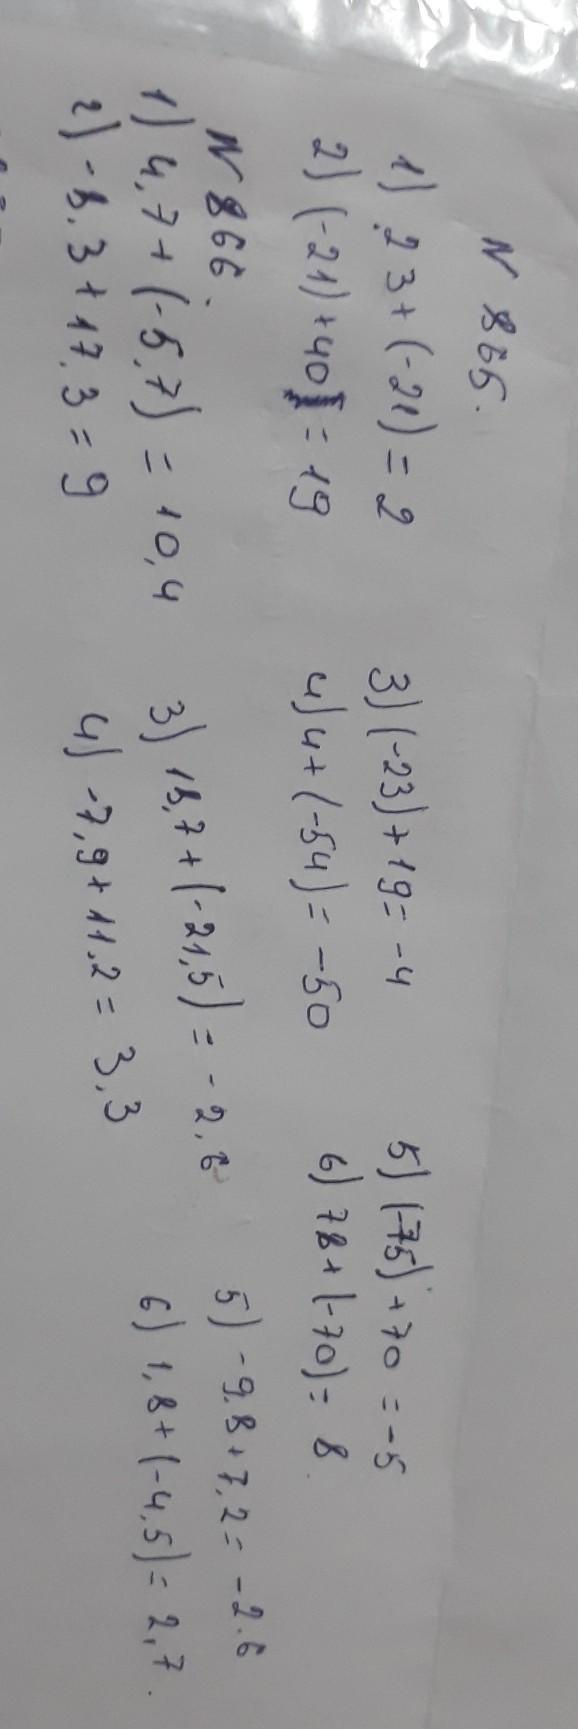 N 865.
1) 23+(-21)=2 3) (-23)+19=-4 5) (-75)+70=-5
2) (-21)+40=19 4) 4+(-54)=-50 6) 78+(-70)=8.
N 866.
1) 4,7+(-5,7)=10,4 3) 18,7+(-21,5)=-2,6 5) -9,8+7,2=-2.6
2) -8,3+17,3=9 4) -7,9+11,2=3,3 6) 1,8+(-4,5)=2,7.